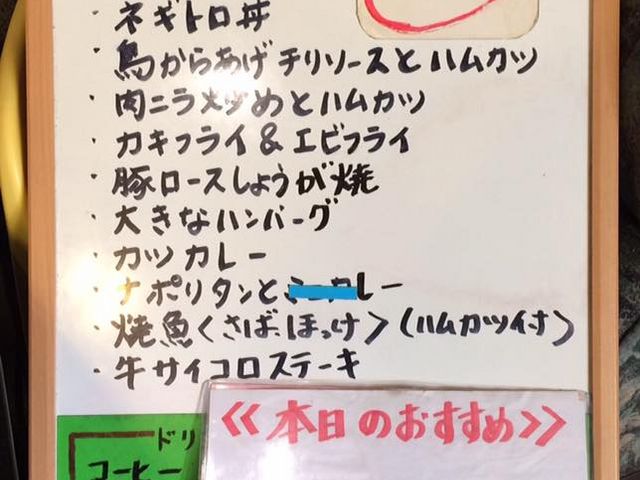 ・ネギトロ丼
・鳥からあげチリソースとハムカツ
・肉ニラ炒めとハムカツ
・カキフライ&エビフライ
・豚ロースしょうが焼
・大きなハンバーグ
・カツカレー
・ナポリタンと レー
・焼魚<さば、ほっけ>(ハムカツ付)
・牛サイコロステーキ
<<本日のおすすめ>>
ドリ
コーヒー